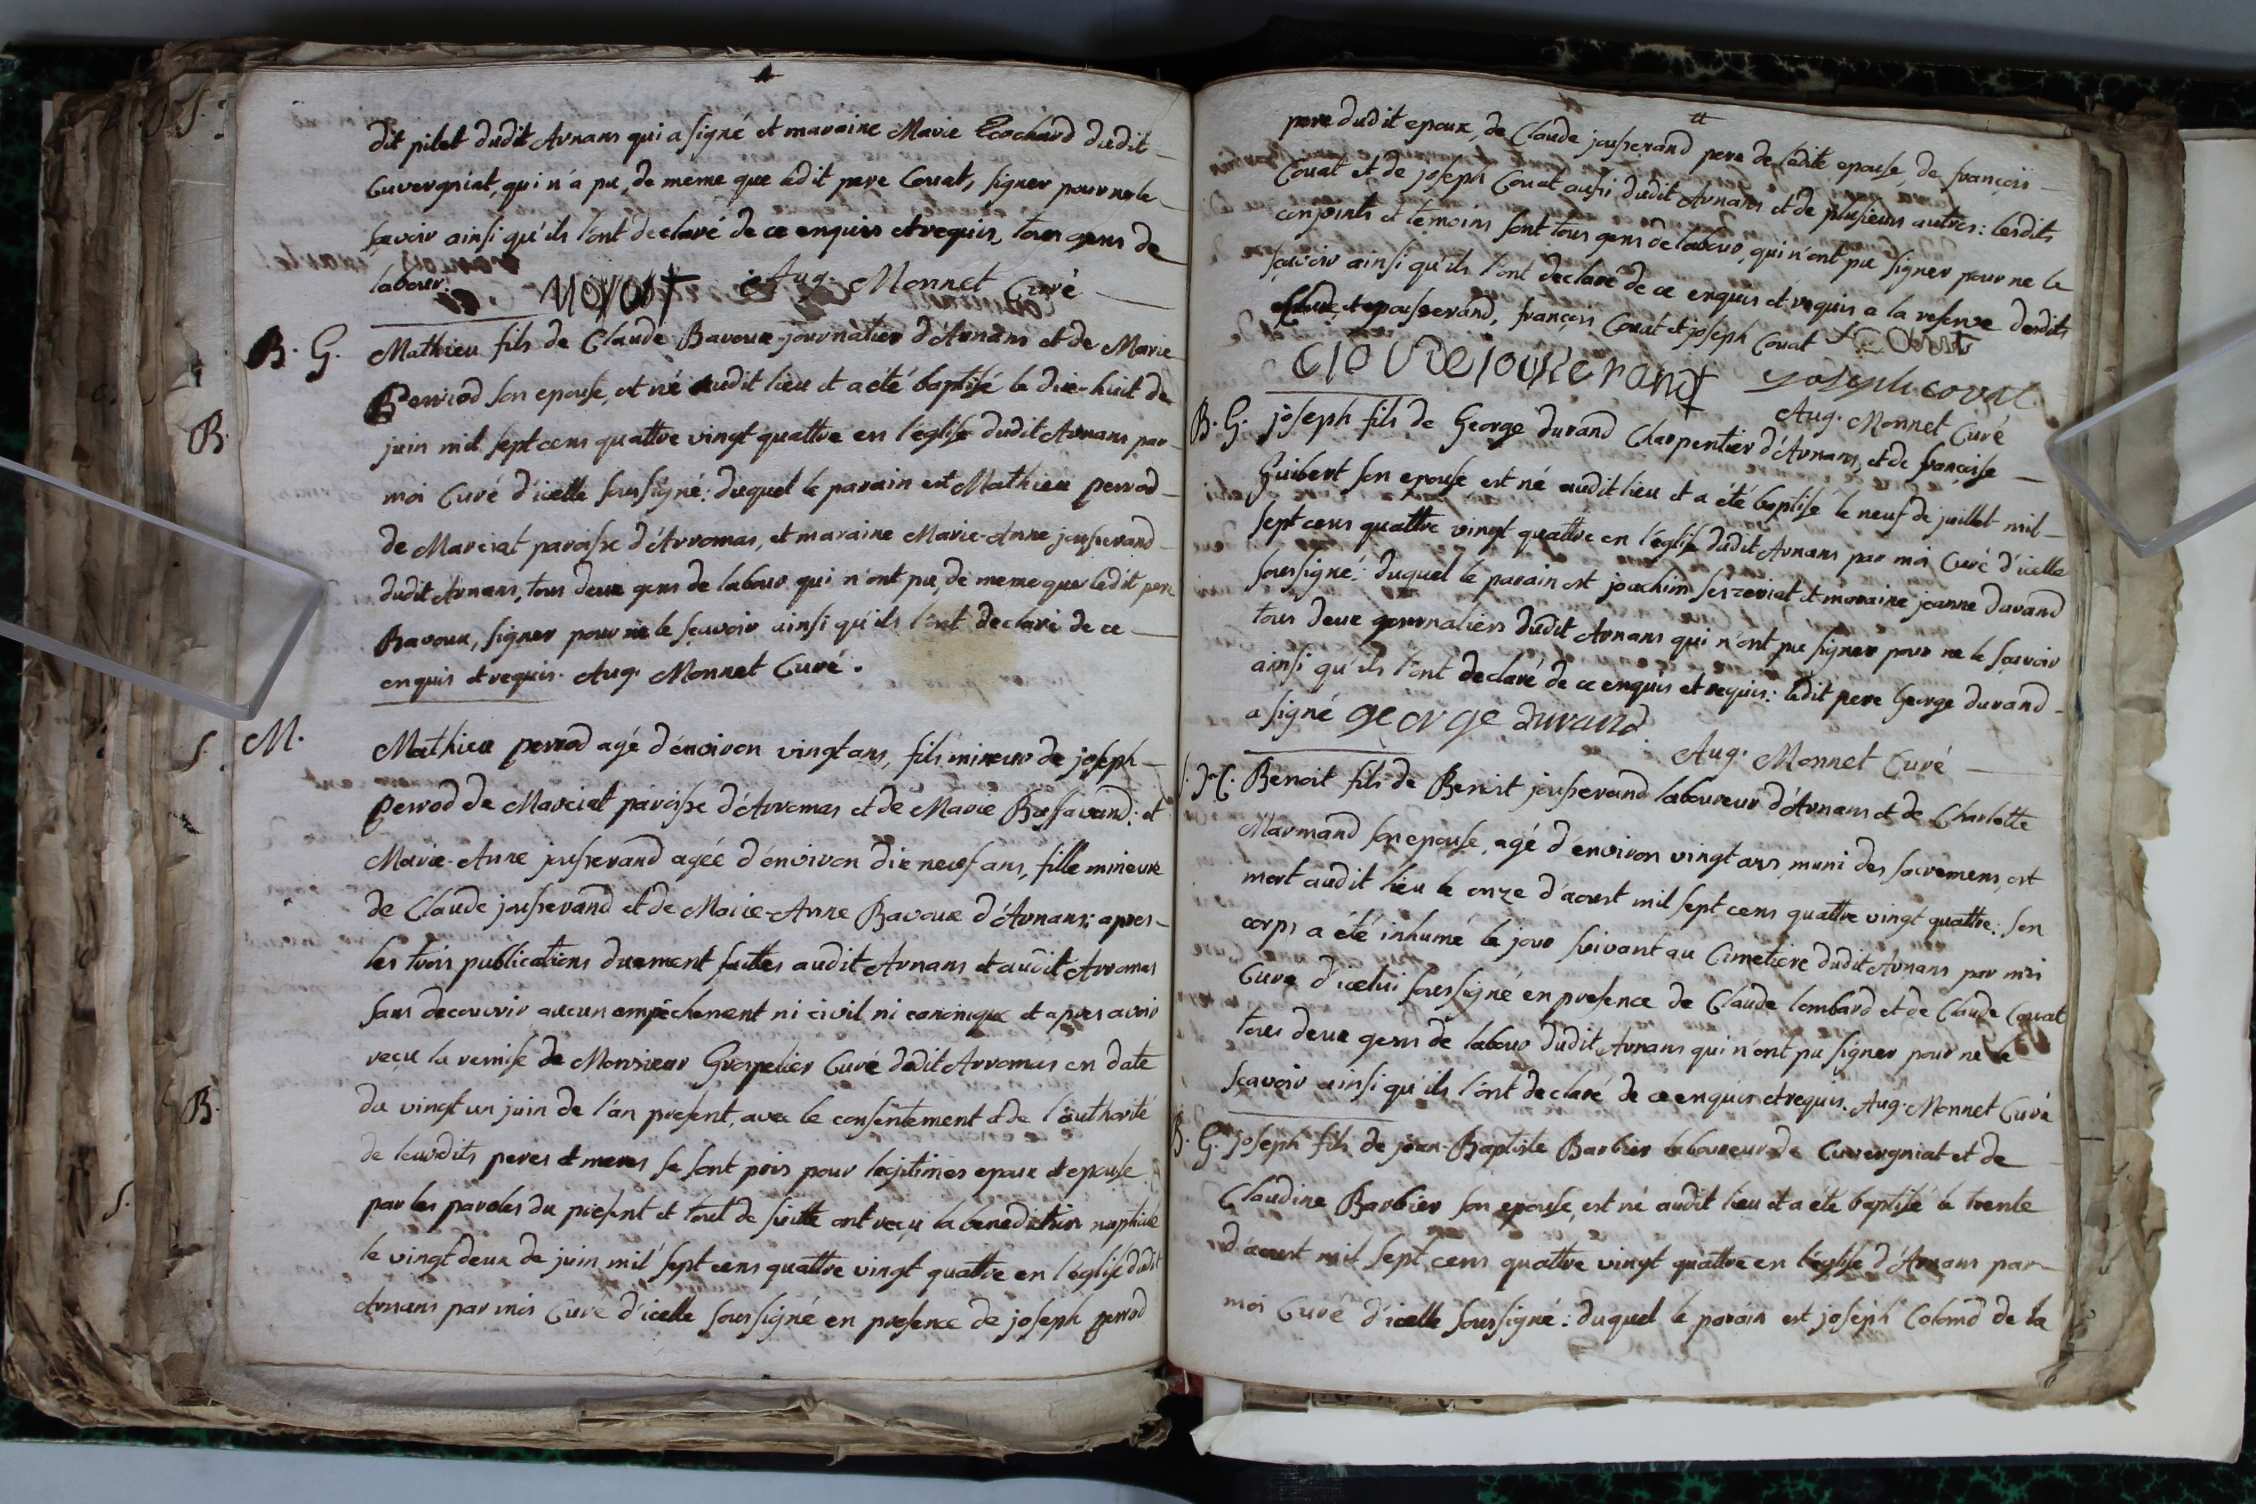 dit pilet dudit Arnans qui a signé et maraine Marie Cochard dudit
Cuvergniat, qui n'a pu, de meme que ledit pere Couat, signer pour ne le
sçavoir ainsi qu'ils l'ont declaré de ce enquis et requis, tous gens de
labour. Aug. Monnet Curé
B. G. Mathieu fils de Claude Bavoux journalier d'Arnans et de Marie
Perriod son epouse, est né audit lieu et a été baptisé le dix-huit de
juin mil sept cens quattre vingt quattre en l'eglise dudit Arnans par
moi Curé d'icelle soussigné: duquel le parain est Mathieu perrod
de Marciat paroisse d'Arromas, et maraine Marie-Anne jousserand
dudit Arnans, tous deux gens de labour qui n'ont pu, de meme que ledit pere
Bavoux, signer pour ne le sçavoir ainsi qu'ils l'ont declaré de ce
enquis et requis. Aug. Monnet Curé.
M. Mathieu perrod agé d'environ vingt ans, fils mineur de joseph
perrod de Marciat paroisse d'Arromas et de Marie; et
Marie-Anne jousserand agée d'environ dix neuf ans, fille mineure
de Claude jousserand et de Marie-Anne Bavoux d'Arnans: apres
les trois publications duement faittes audit Arnans et audit Arromas
sans decouvrir aucun empêchement ni civil ni canonique et apres avoir
reçu la remise de Monsieur Grospelier Curé dudit Arromas en date
du vingt un juin de l'an present, avec le consentement et de l'authorité
de leursdits peres et meres se sont pris pour legitimes epoux et epouse
par les paroles du present et tout de suitte ont reçu la benediction nuptiale
le vingt deux de juin mil sept cens quattre vingt quattre en l'eglise dudit
Arnans par moi Curé d'icelle soussigné en presence de joseph perrod
pere dudit epoux, de Claude jousserand pere de ladite epouse, de françois
Couat et de joseph Couat aussi dudit Arnans et de plusieurs autres: lesdits
conjoints et temoins sont tous gens de labour, qui n'ont pu signer pour ne le
sçavoir ainsi qu'ils l'ont declaré de ce enquis et requis a la reserve desdits
Claude jousserand, françois Couat et joseph Couat f Couat
Cloude jousserand joseph couat
Aug. Monnet Curé
B. G. joseph fils de George durand Charpentier d'Arnans, et de françoise
Guibert son epouse est né audit lieu et a été baptisé le neuf de juillet mil
sept cens quattre vingt quattre en l'eglise dudit Arnans par moi Curé d'icelle
soussigné: duquel le parain est joachim serzeriat et maraine jeanne durand
tous deux journaliers dudit Arnans qui n'ont pu signer pour ne le sçavoir
ainsi qu'ils l'ont declaré de ce enquis et requis: ledit pere George durand
a signé george durand
Aug. Monnet Curé
Benoit fils de Benoit jousserand laboureur d'Arnans et de Charlotte
Marmand son epouse, agé d'environ vingt ans, muni des sacremens, est
mort audit lieu le onze d'aoust mil sept cens quattre vingt quattre: son
corps a été inhumé le jour suivant au Cimetiere dudit Arnans par moi
Curé d'icelui soussigné en presence de Claude lombard et de Claude Couat
tous deux gens de labour dudit Arnans qui n'ont pu signer pour ne le
sçavoir ainsi qu'ils l'ont declaré de ce enquis et requis. Aug. Monnet Curé
B. G. joseph fils de jean-Baptiste Barbier laboureur de Cuvergniat et de
Claudine Barbier son epouse, est né audit lieu et a été baptisé le trente
d'aoust mil sept cens quattre vingt quattre en l'eglise d'Arnans par
moi Curé d'icelle soussigné: duquel le parain est joseph Colomb de la